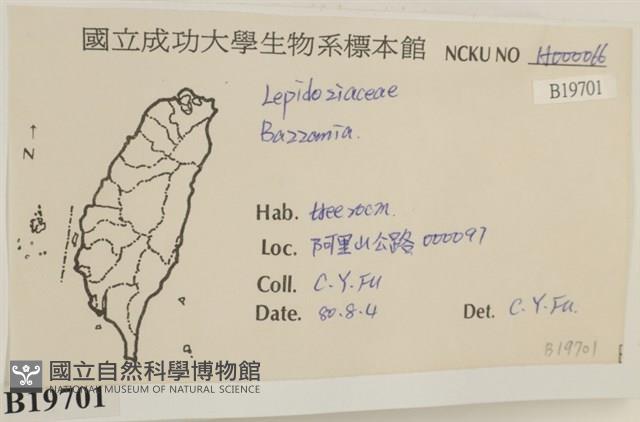 國立成功大學生物系標本館 NCKU NO H000066
B19701
Lepidoziaceae
Bazzania.
N
Hab.
Loc. 阿里山公路 000097
Coll. C.Y.Fu
Date. 80.8.4 Det. C.Y.Fu.
B19701
國立自然科學博物館
NATIONAL MUSEUM OF NATURAL SCIENCE
B19701